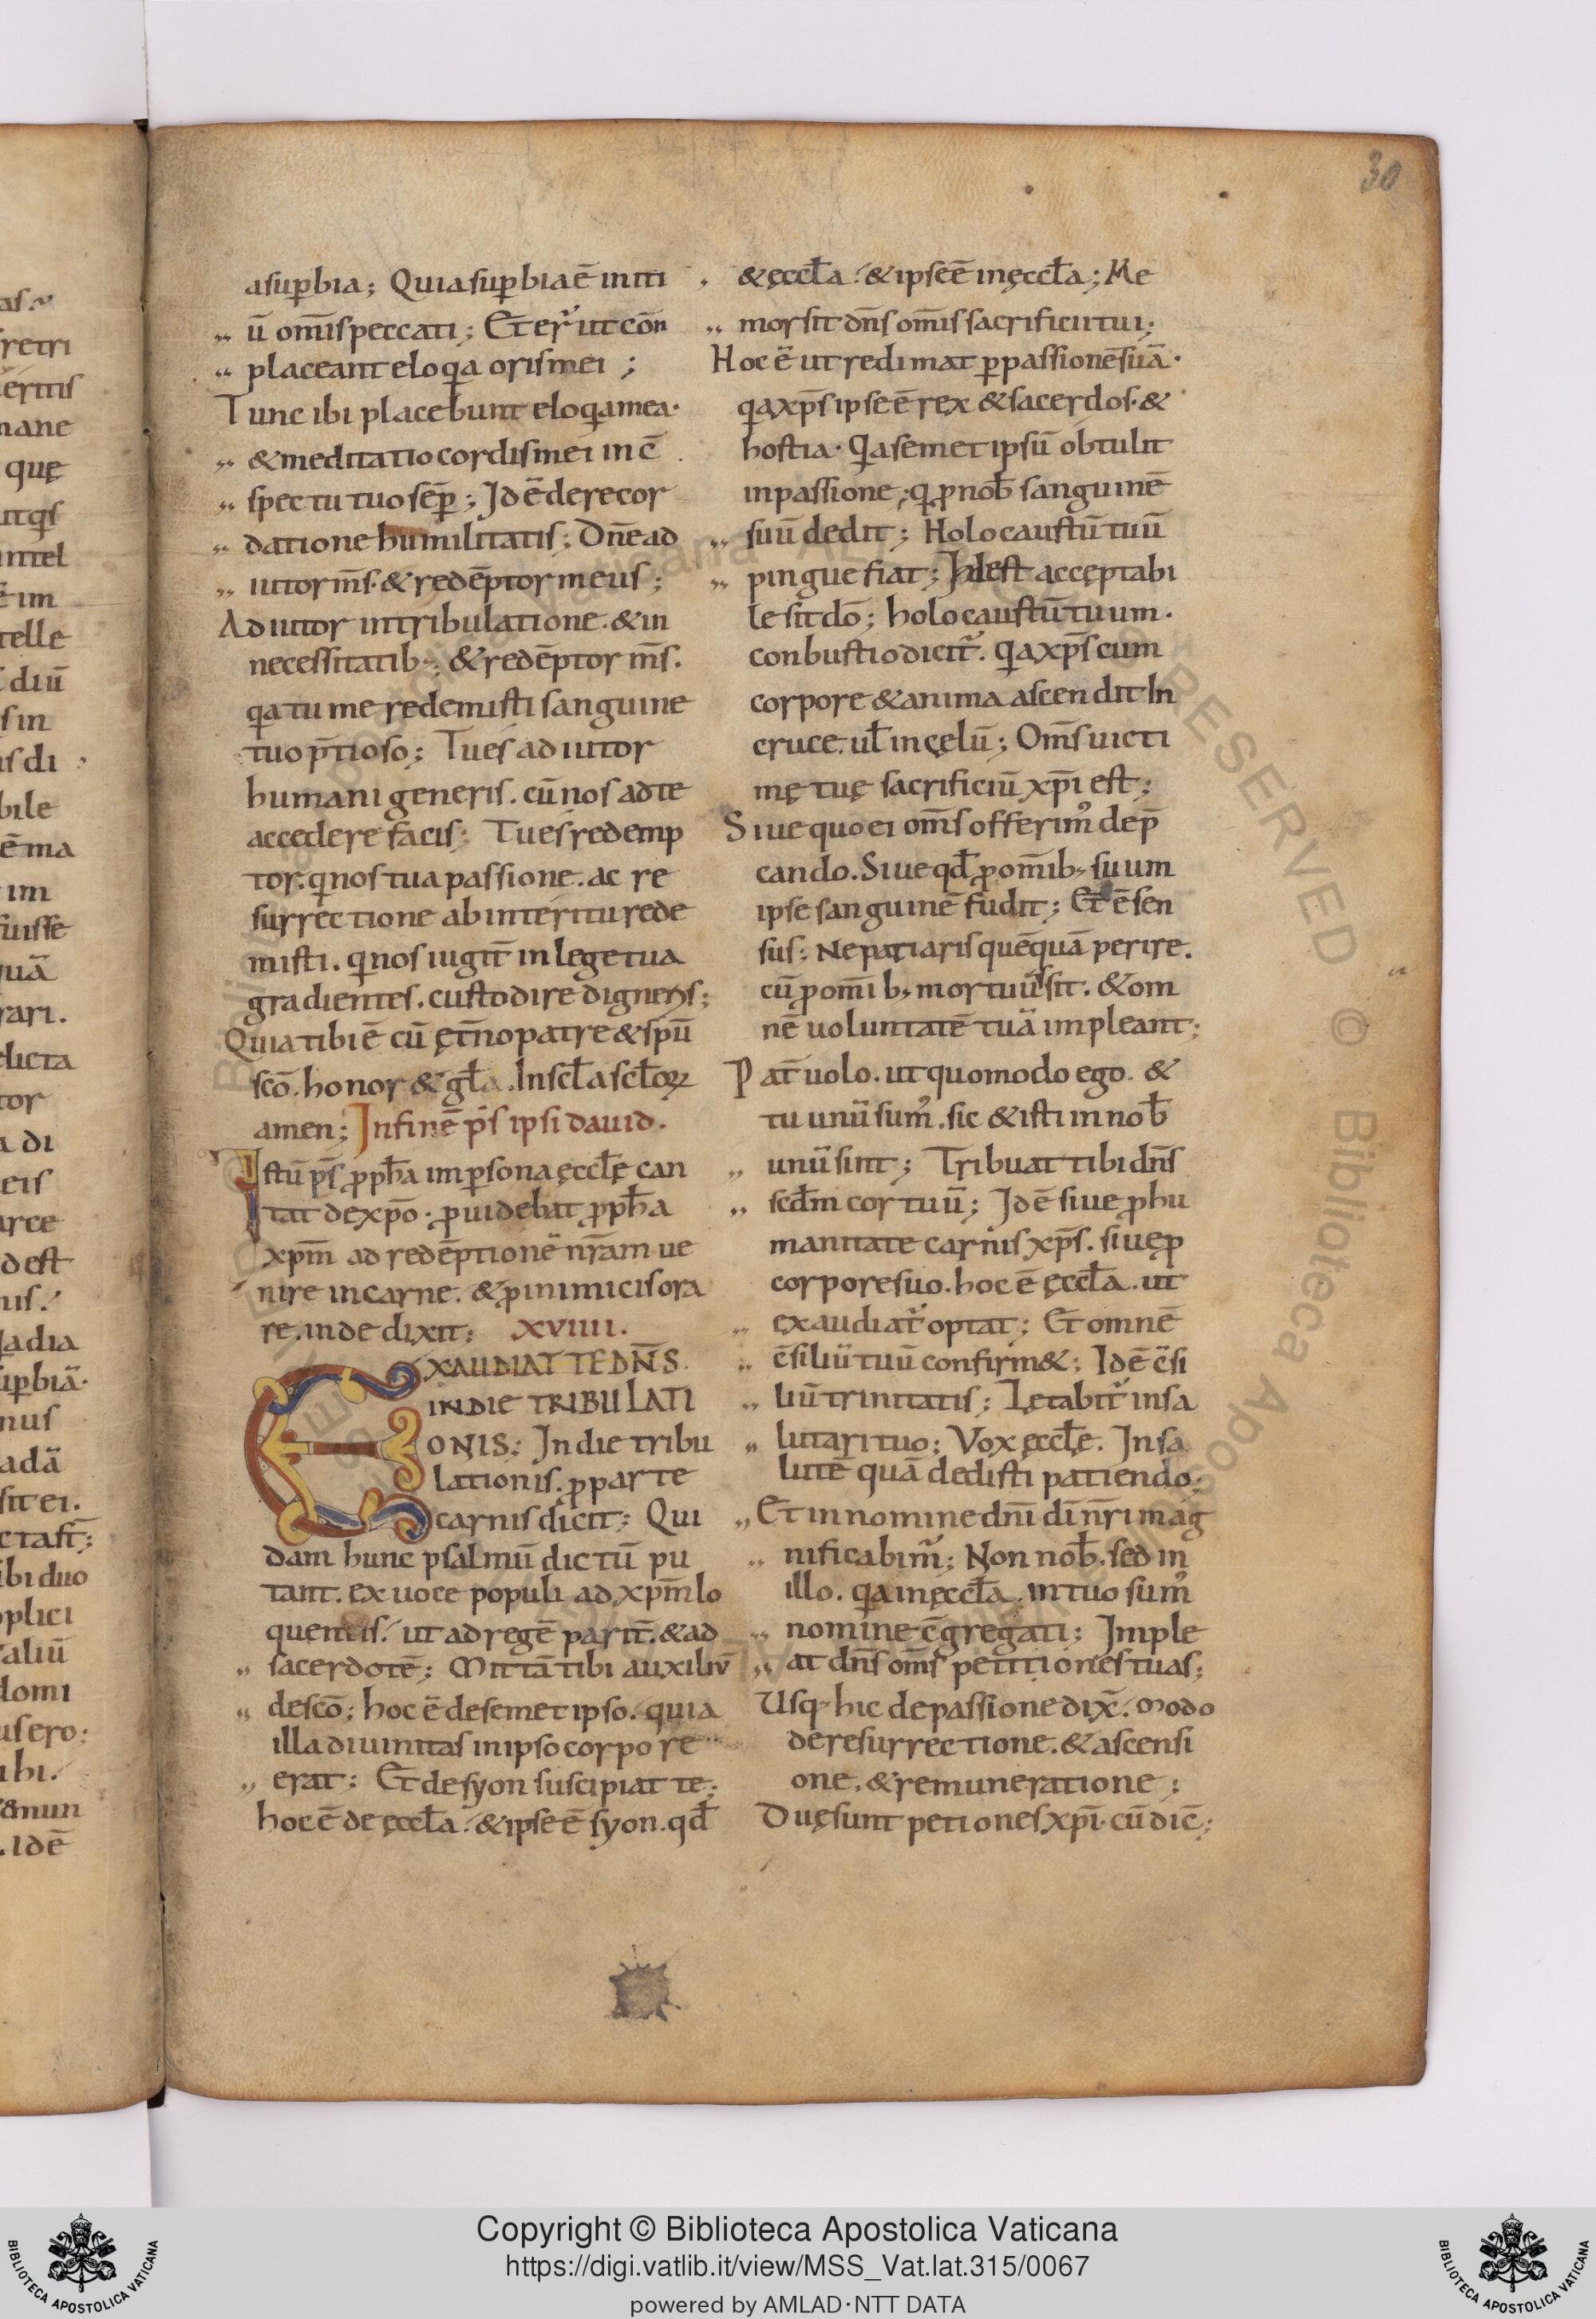 30
asuꝑbia; Quia suꝑbia ē initi
ū om̄is peccati; Et erᷓt ut cōn
placeant eloqa oris mei;
Tunc ibi placebunt eloqa mea·
& meditatio cordis mei in c̄
spectu tuo sēp; Id ē de recor
datione humilitatis; Dn̄e ad
iutor m̄s· & redēptor meus;
Adiutor in tribulatione· & in
necessitatib; & redēptor m̄s.
qa tu me redemisti sanguine
tuo p̄tioso; Tu es adiutor
humani generis. cū nos ad te
accedere facis; Tu es redemp
tor. qi nos tua passione. ac re
surrectione ab interitu rede
misti. qi nos iugit̄ in lege tua
gradientes. custodire digneris;
Quia tibi ē cū ęt̄no patre & sp̄u
sc̄o. honor & gl̄a. In scl̄a scl̄oꝝ
amen; In finē p̄s ipsi dauid.
Istū p̄s ꝓph̄a in ꝑsona ęccl̄ę can
tat de xp̄o· ꝓuidebat ꝓph̄a
xp̄m ad redēptionē nr̄am ue
nire in carne. & ꝓ inimicis ora
re. inde dixit; XVIIII.
EXAUDIAT TE DN̄S
IN DIE TRIBULATI
ONIS; In die tribu
lationis. ꝓ parte
carnis dicit; Qui
dam hunc psalmū dictū pu
tant. ex uoce populi ad xp̄m lo
quentis. ut ad regē parit̄. & ad
sacerdotē; Mittat̄ tibi auxiliū
de sc̄o; hoc ē de semet ipso. quia
illa diuinitas in ipso corpore
erat; Et de syon suscipiat te;
hoc ē de ęccl̄a. & ipse ē syon. qd̄
& ęccl̄a. & ipse ē in ęccl̄a; Me
mor sit dn̄s om̄is sacrificii tui;
Hoc ē ut redimat ꝑ passionē suā·
qa xp̄s ipse ē rex & sacerdos· &
hostia· Qa semet ipsū obtulit
in passione; qi ꝓ nob̄ sanguinē
suū dedit; Holocaustū tuū
pingue fiat; Id est acceptabi
le sit dō; holocaustū tuum·
conbustio dicit᷑. qa xp̄s cum
corpore & anima ascendit In
cruce. ul̄ in cęlū; Om̄s uicti
mę tuę sacrificiū xp̄i est;
Siue quo ei om̄s offerimꝰ dep̄
cando. Siue qd̄ ꝓ om̄ib; suum
ipse sanguinē fudit; Et ē sen
sus; Ne patiaris quēquā perire.
cū ꝓ om̄ib; mortuus sit. & om
nē uoluntatē tuā impleant;
Pat̄ uolo. ut quomodo ego. &
tu unū sumꝰ. sic & isti in nob̄
unū sint; Tribuat tibi dn̄s
scd̄m cor tuū; Id ē siue ꝓ hu
manitate carnis xp̄s. siue ꝓ
corpore suo. hoc ē ęccl̄a. ut
exaudiat᷑ optat; Et omnē
c̄siliū tuū confirm&; Id ē c̄si
liū trinitatis; Lętabit᷑ in sa
lutari tuo; Vox ęccl̄ę. In sa
lutē quā dedisti patiendo;
Et in nomine dn̄i dī nr̄i mag
nificabim᷑; Non nob̄. sed in
illo. qa in ęccl̄a. in tuo sumꝰ
nomine c̄gregati; Imple
at dn̄s om̄s petitiones tuas;
Usq; hic de passione dix̄. modo
de resurrectione. & ascensi
one. & remuneratione;
Duę sunt petiones xp̄i· cū dic̄;
Copyright © Biblioteca Apostolica Vaticana
https://digi.vatlib.it/view/MSS_Vat.lat.315/0067
powered by AMLAD·NTT DATA
BIBLIOTECA APOSTOLICA VATICANA
BIBLIOTECA APOSTOLICA VATICANA